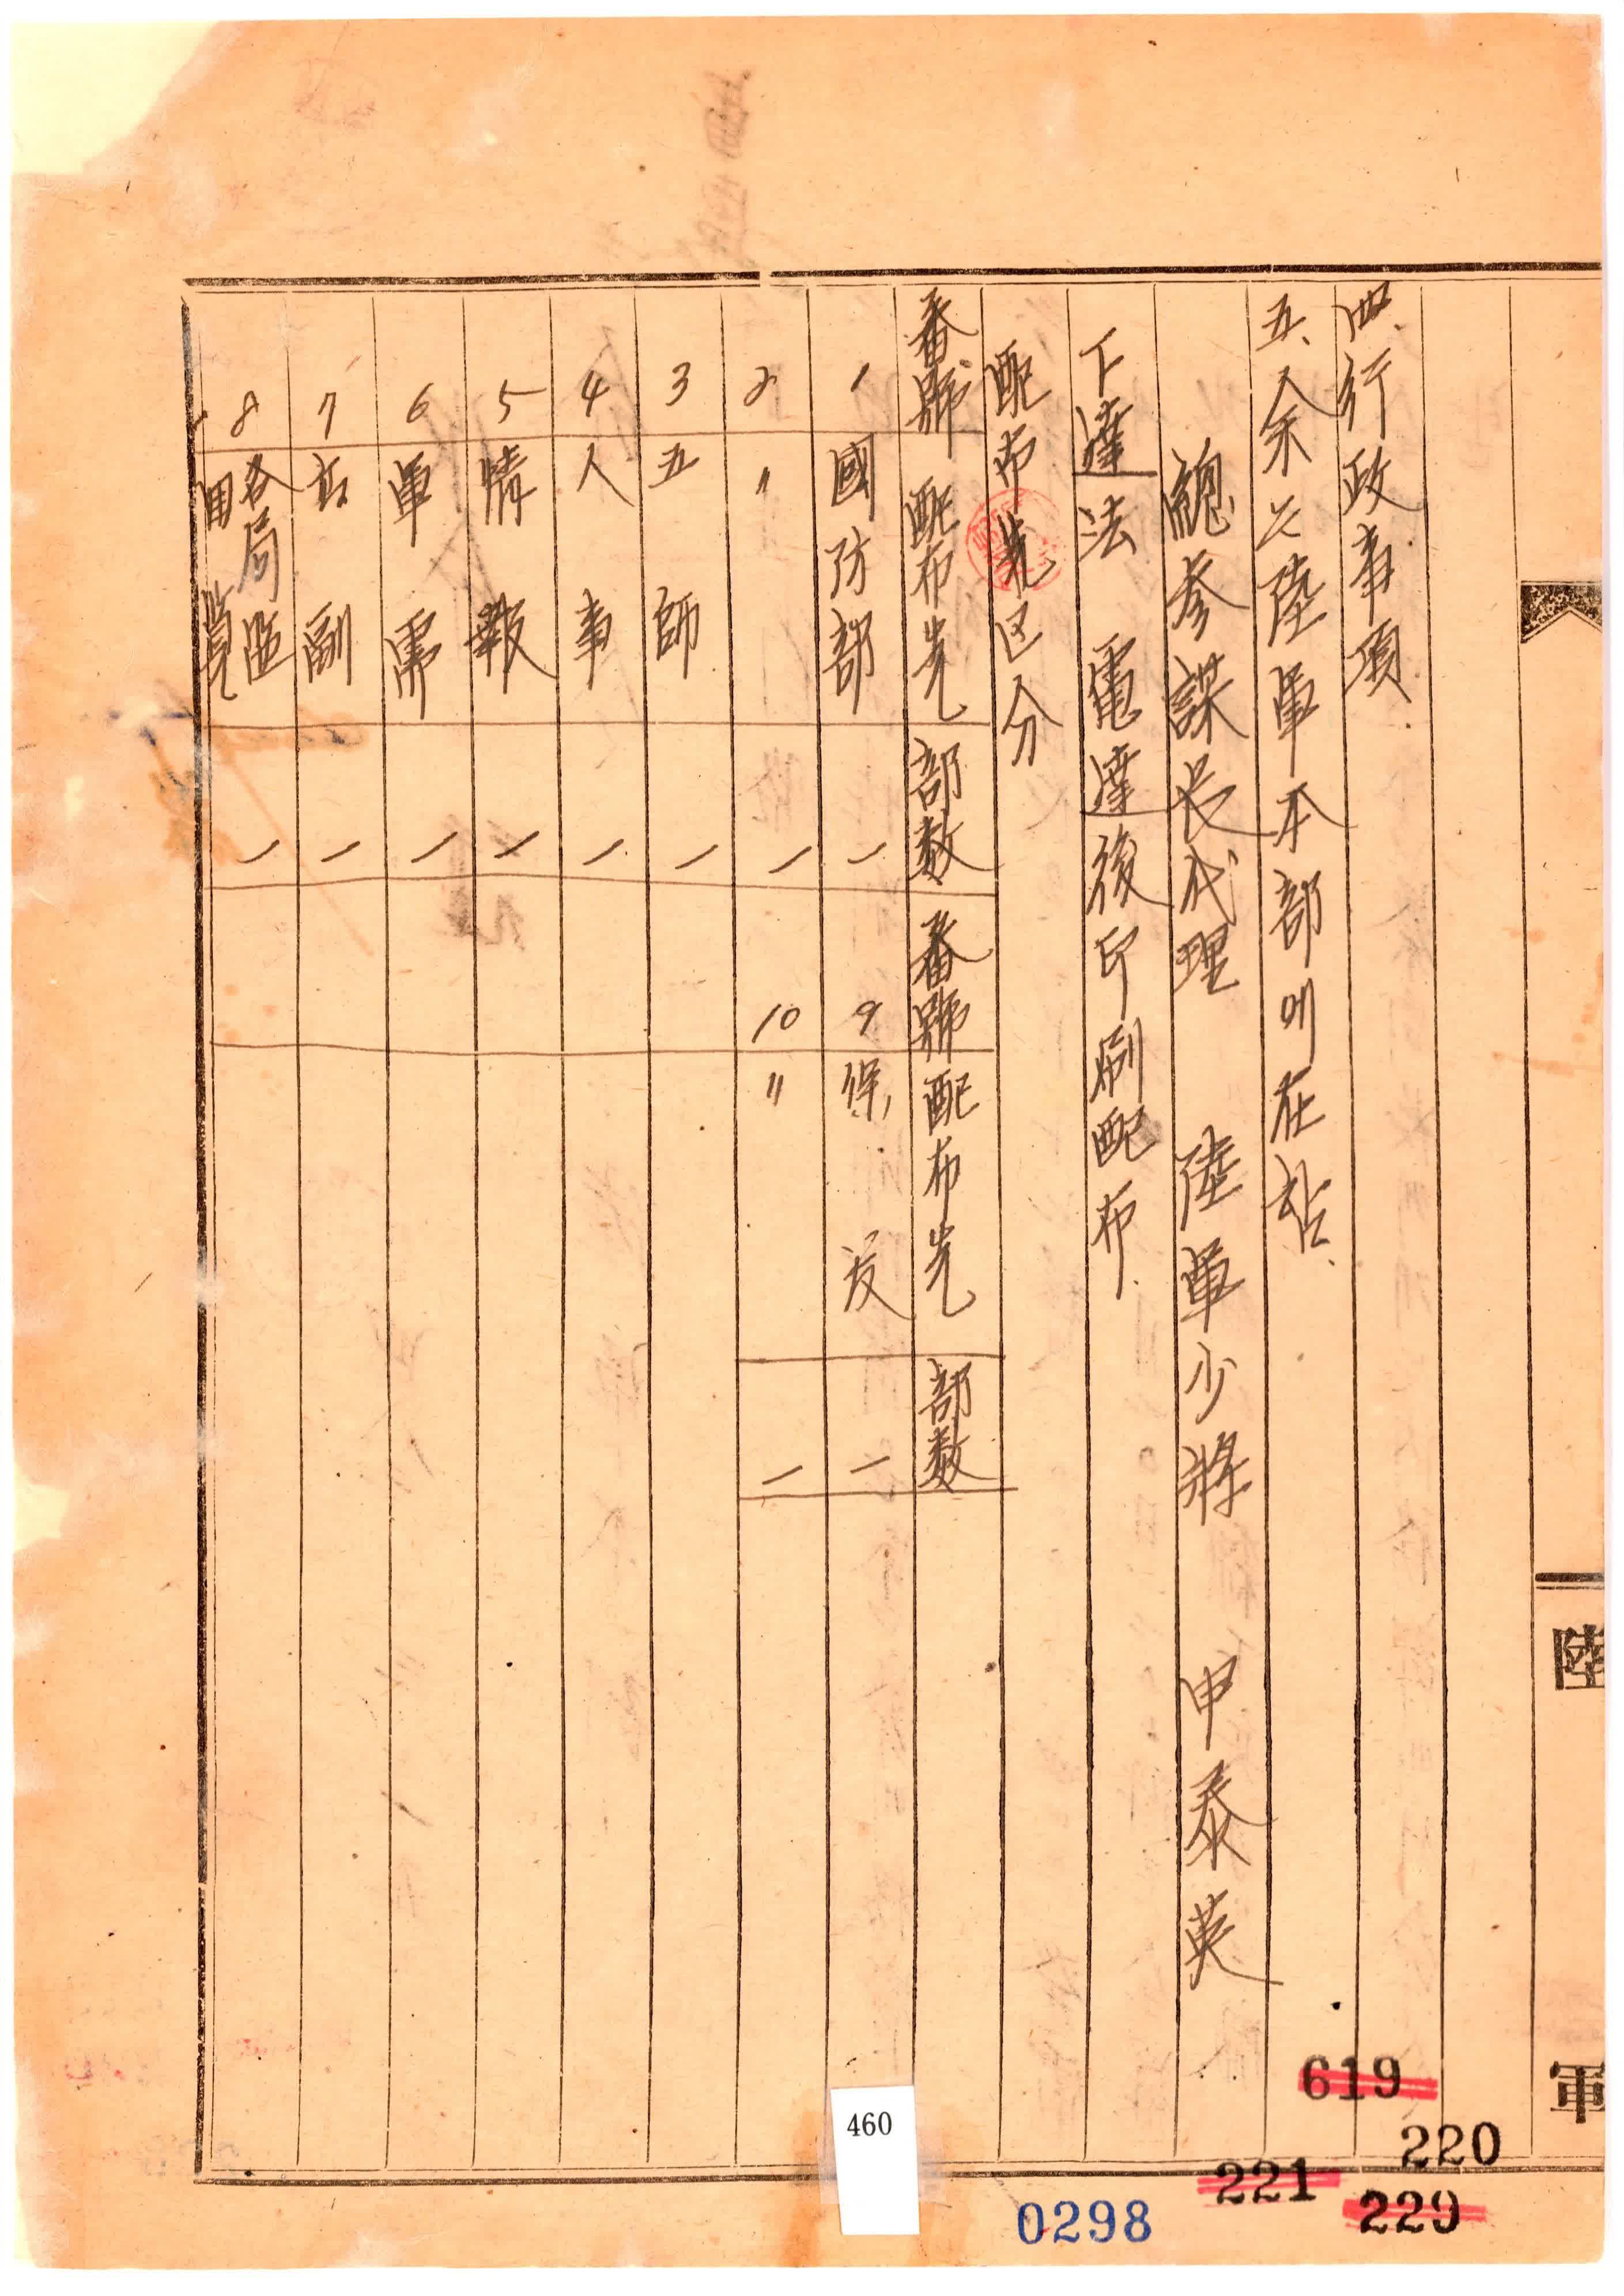 陸軍
四、行政事項.
五、余는陸軍本部에在함.
總参謀长代理 陸軍少將 申泰英
下達法 電達後印刷配布.
配布先区分
番號 配布先 部数 番號 配布先 部数
1 國防部 一 9 保 一
2 〃 一 10 〃 一
3 五師 一
4 人事 一
5 情報 一
6 軍需 一
7 高副 一
8 各局監回覧 一
619
220
221
229
0298
460